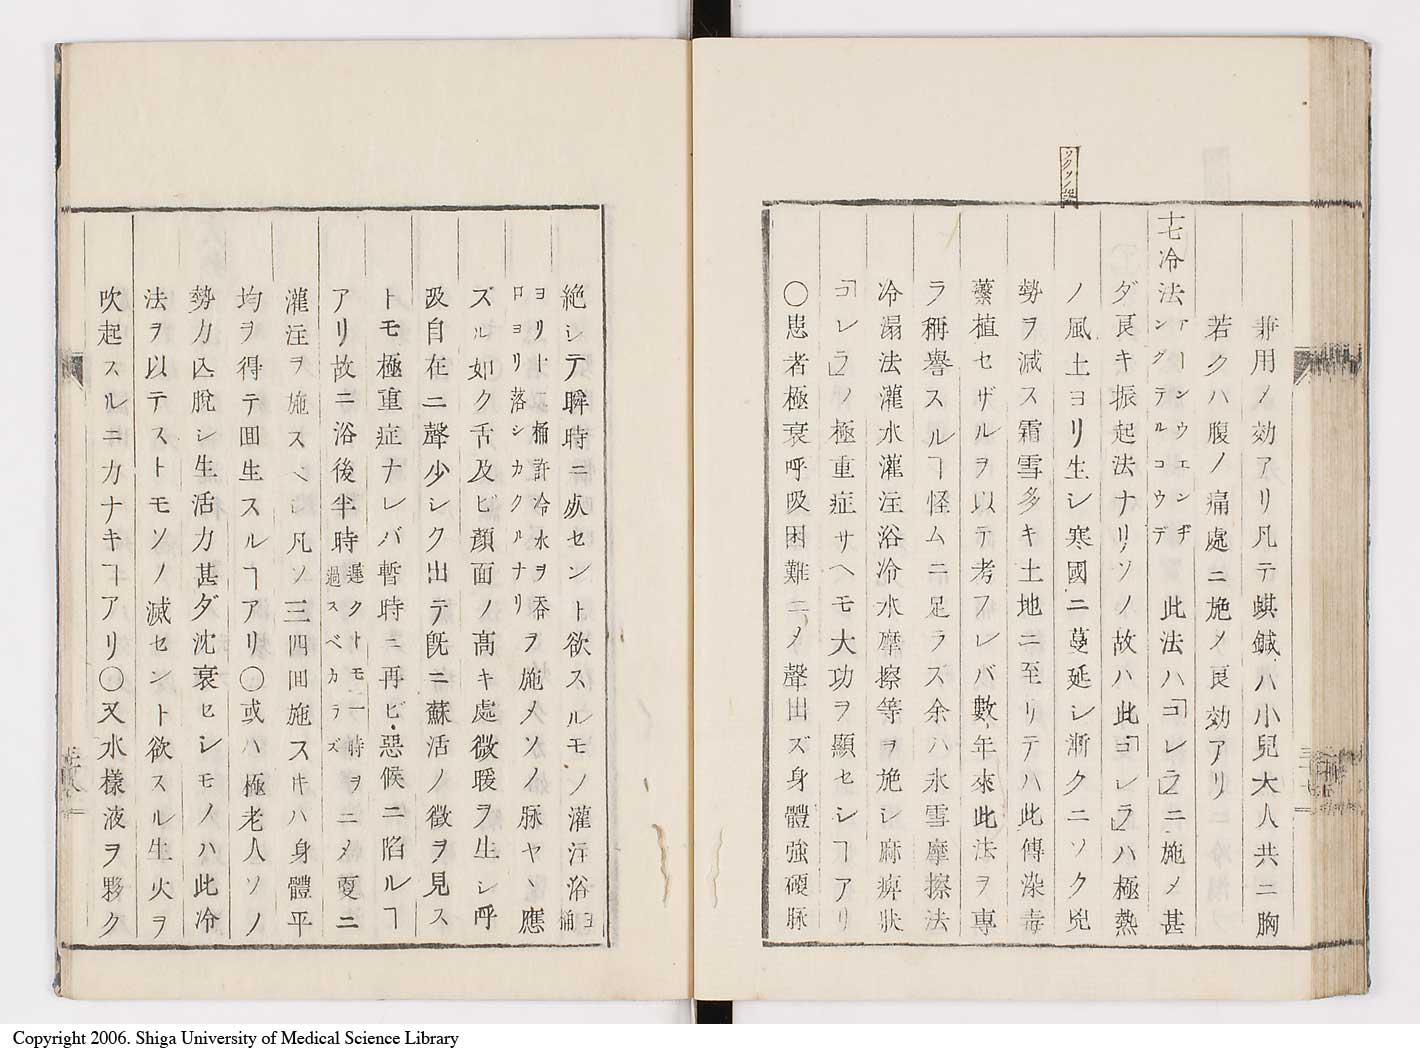 兼用ノ効アリ凡テ蜞鍼ハ小兒大人共ニ胸
若クハ腹ノ痛處ニ施メ良効アリ
十七冷法アーンウエンヂングテルコウデ 此法ハ「コレラ」ニ施メ甚
ダ良キ振起法ナリソノ故ハ此「コレラ」ハ極熱
ノ風土ヨリ生シ寒國ニ蔓延シ漸クニソク兇
勢ヲ減ス霜雪多キ土地ニ至リテハ此傳染毒
蘩植セザルヲ以テ考フレバ數年來此法ヲ專
ラ稱譽スルヿ怪ムニ足ラス余ハ氷雪摩擦法
冷溻法灌水灌注浴冷水摩擦等ヲ施シ麻痺狀
「コレラ」ノ極重症サヘモ大功ヲ顯セシヿアリ
〇患者極衰呼吸困難ニメ聲出ズ身體強硬脉
絶シテ瞬時ニ死セント欲スルモノ灌注浴桶ヨ
ヨリ十二桶許冷水ヲ呑口ヨリ落シカクルナリヲ施メソノ脉ヤヽ應
ズル如ク舌及ビ顔面ノ髙キ處微暖ヲ生シ呼
吸自在ニ聲少シク出テ既ニ蘇活ノ徴ヲ見ス
トモ極重症ナレバ暫時ニ再ビ惡候ニ陷ルヿ
アリ故ニ浴後半時遲クトモ一時ヲ過スベカラズニメ更ニ
灌注ヲ施スベシ凡ソ三四回施スキハ身體平
均ヲ得テ回生スルヿアリ〇或ハ極老人ソノ
勢力亾脱シ生活力甚ダ沈衰セシモノハ此冷
法ヲ以テストモソノ滅セント欲スル生火ヲ
吹起スルニ力ナキヿアリ〇又水樣液ヲ夥ク
Copyright 2006. Shiga University of Medical Science Library